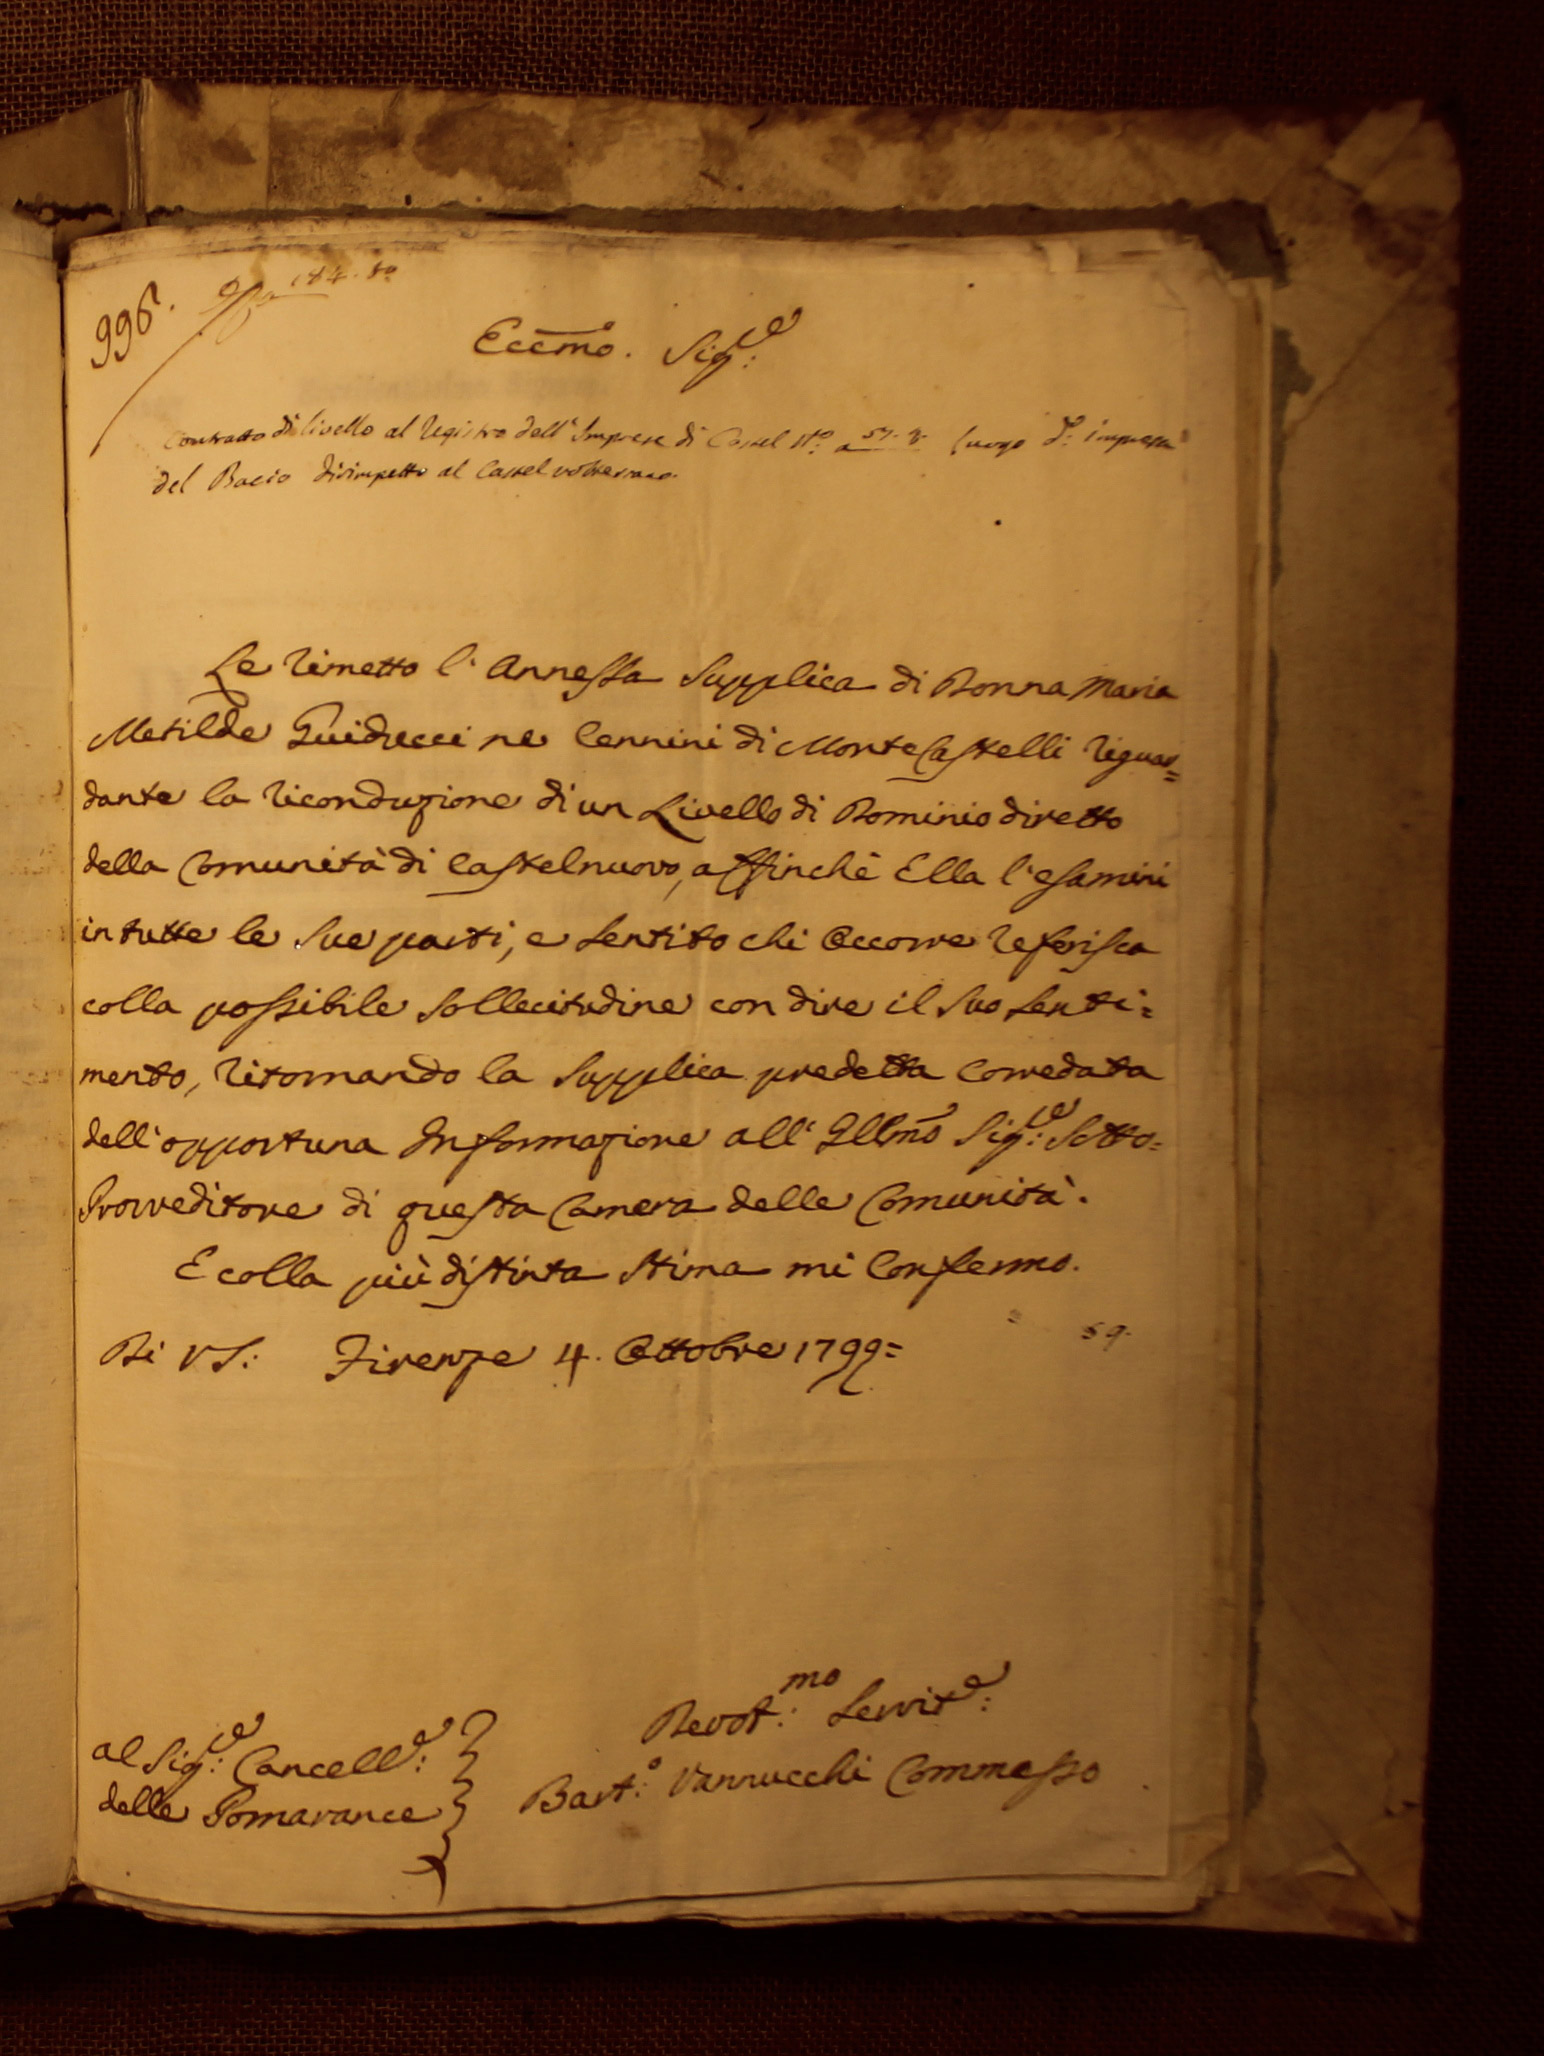 996.
184. to
Eccmo. Sigre:
Contratto di livello al Registro dell'Imprese di Castel Nvo. a 57. luogo do: impresa
del Bacio dirimpetto al Castel volterrano.
Le rimetto l'Annessa Supplica di Donna Maria
Matilde Guiducci ne Cennini di Monte Castelli riguar=
dante la riconduzione di un Livello di Dominio diretto
della Comunità di Castelnuovo, affinchè Ella l'esamini
in tutte le sue parti, e sentito chi Occorre referisca
colla possibile sollecitudine con dire il suo senti=
mento, ritornando la Supplica predetta Corredata
dell'opportuna Informazione all'Illmo Sigre: Sotto=
Provveditore di questa Camera delle Comunità.
E colla più distinta stima mi Confermo.
Di VS: Firenze 4. Ottobre 1799=
59.
Al Sigre: Cancelle:
delle Pomarance
Devot:mo Servite:
Barto: Vannucchi Commesso